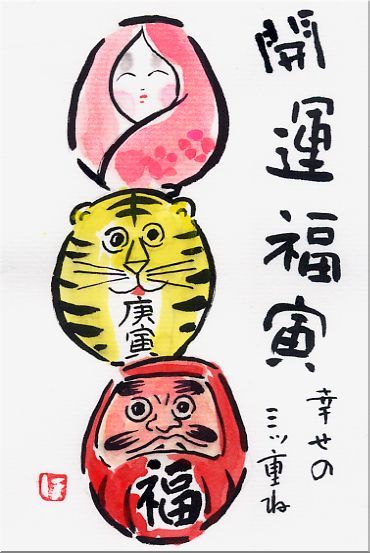 開運福寅
幸せの
三ツ重ね
庚寅
福